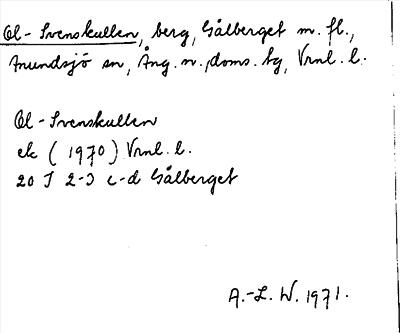 Ol-Svenskullen, berg, Gålberget m. fl.,
Anundsjö sn, Ång. n. doms. tg, Vrnl. l.
Ol-Svenskullen
ek (1970) Vrnl. l.
20 J 2-3 c-d Gålberget
A.-L. W. 1971.